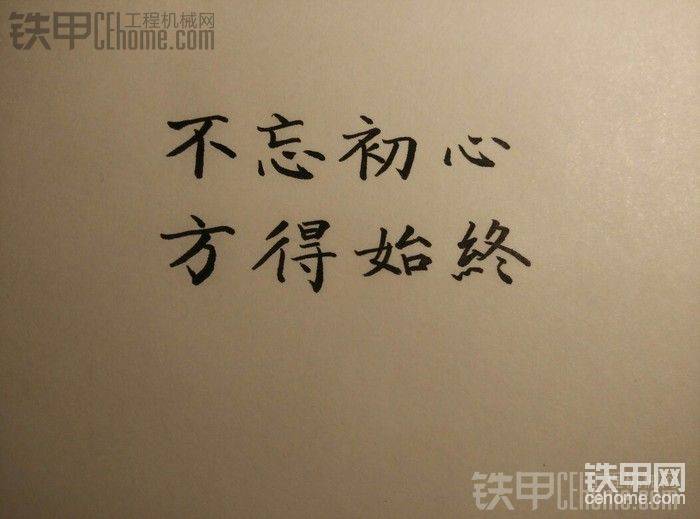 铁甲 工程机械网
CEhome.com
不忘初心
方得始終
铁甲CEhome.com
铁甲网
cehome.com